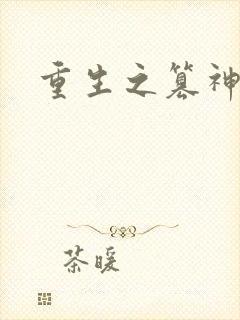 重生之篡神
茶暖